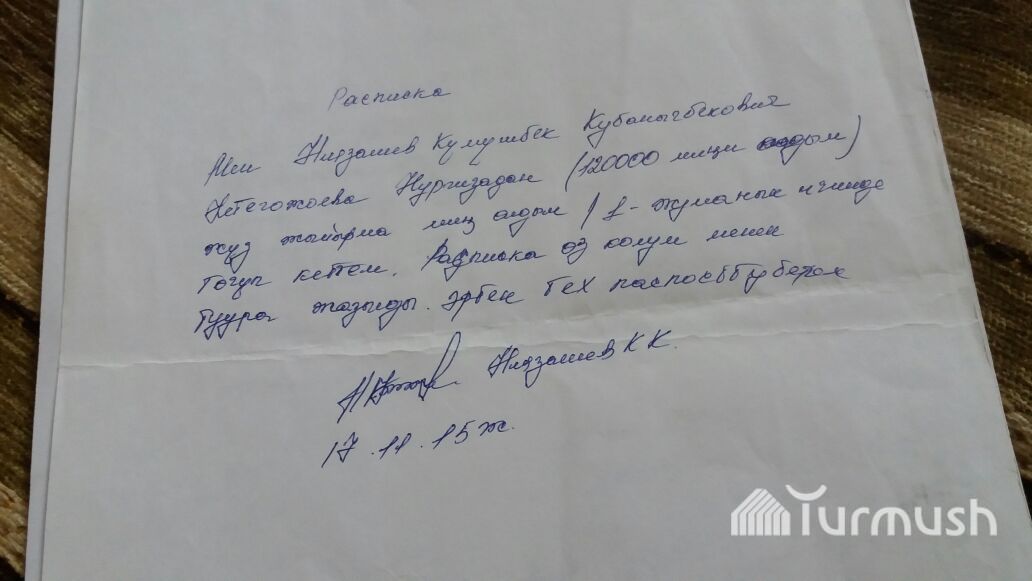 Расписка
Мен Ниязалиев Кумушбек Кубанычбекович
Нургизадан (120000 миңи алдым)
жүз жыйырма миң алдым / 1 - жуманын ичинде
төгүп кетем. Расписка өз колум менен
туура жазылды. Эрбен тех паспо
Ниязалиев К К.
17.11.15ж.
Turmush